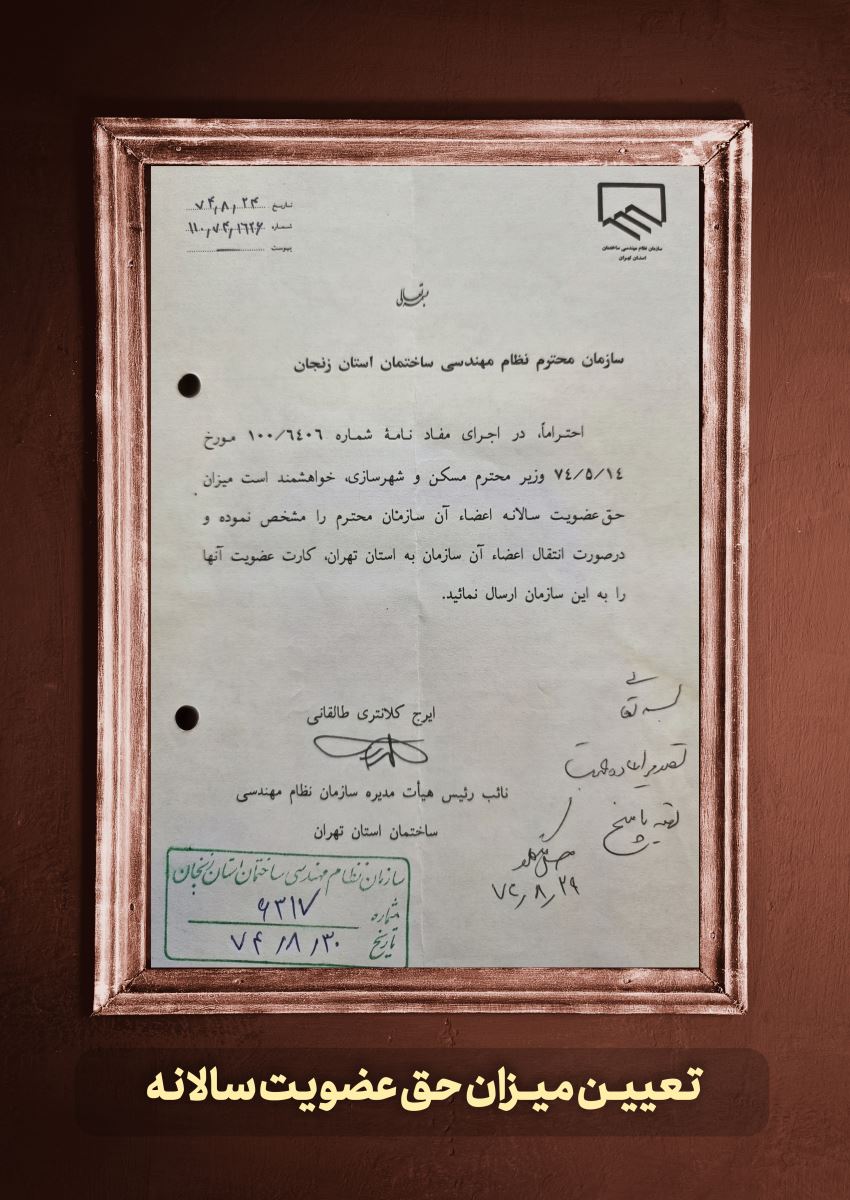 سازمان نظام مهندسی ساختمان
استان تهران
تاریخ ۷۴٫۸٫۲۴
شماره ۱۱۰٫۷۴٫۱۶۲۶
پیوست
بسمه تعالی
سازمان محترم نظام مهندسی ساختمان استان زنجان
احتراماً، در اجرای مفاد نامهٔ شماره ۱۰۰/۶٤۰۶ مورخ
۷٤/۵/۱٤ وزیر محترم مسکن و شهرسازی، خواهشمند است میزان
حق‌عضویت سالانه اعضاء آن سازمان محترم را مشخص نموده و
درصورت انتقال اعضاء آن سازمان به استان تهران، کارت عضویت آنها
را به این سازمان ارسال نمائید.
ایرج کلانتری طالقانی
نائب رئیس هیأت مدیره سازمان نظام مهندسی
ساختمان استان تهران
بسمه تعالی
تهیه پاسخ
۷۴٫۸٫۲۹
سازمان نظام مهندسی ساختمان استان زنجان
شماره ۶۳۱۷
تاریخ ۷۴/۸/۳۰
تعیین میزان حق عضویت سالانه